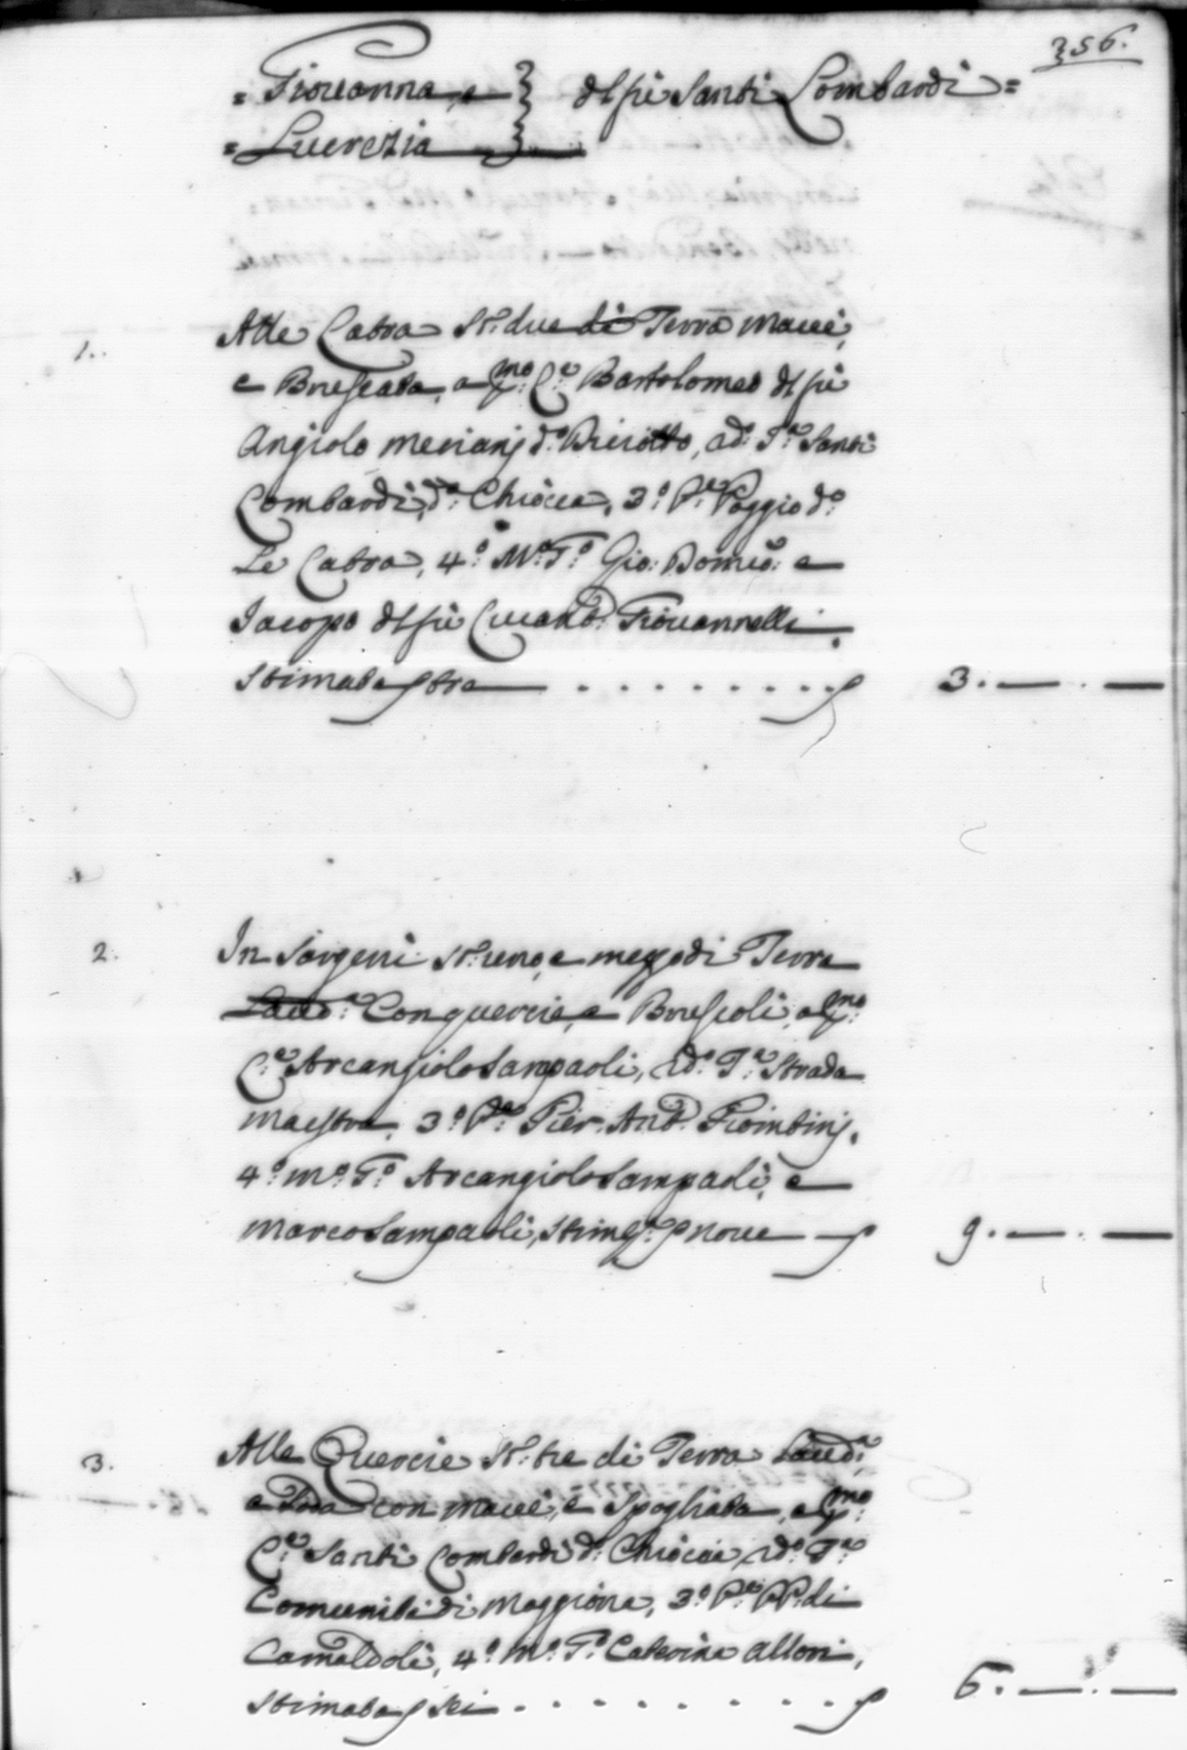 356.
= Giovanna, e } dl fù Santi Lombardi =
= Lucrezia
1. Alle Catra St: due di Terra Macci,
e Bruscata, a p:mo C:e Bartolomeo dl fù
Angiolo Meriani d:o Briciotto, 2d:o T:e Santi
Lombardi, d:o Chiocca, 3:o P:e Poggio d:o
Le Catra, 4:o M:o T:o Gio: Domco: e
Jacopo dl fù Lucantd: Giovannelli.
Stimata p tre . . . . . . . . . p 3. — . —
2. In Sorgeni St: uno, e mezzo di Terra
Laud:a Con quercie, e Bruscoli, a p:mo
C:e Arcangiolo Sampaoli, 2d:o T:e Strada
Maestra, 3:o P:e Pier Antd: Piombini,
4:o M:o T:o Arcangiolo Sampaoli, e
Marco Sampaoli, Stim:a p nove p 9. — . —
3. Alle Quercie St: tre di Terra Laud:a
e Soda con macci, e Spogliata, a p:mo
C:e Santi Lombardi d:o Chiocca, 2d:o T:e
Comunità di Moggiona, 3:o P:e PP. di
Camaldoli, 4:o M:o T:o Caterina Allori,
Stimata p sei . . . . . . . . p 6. — . —